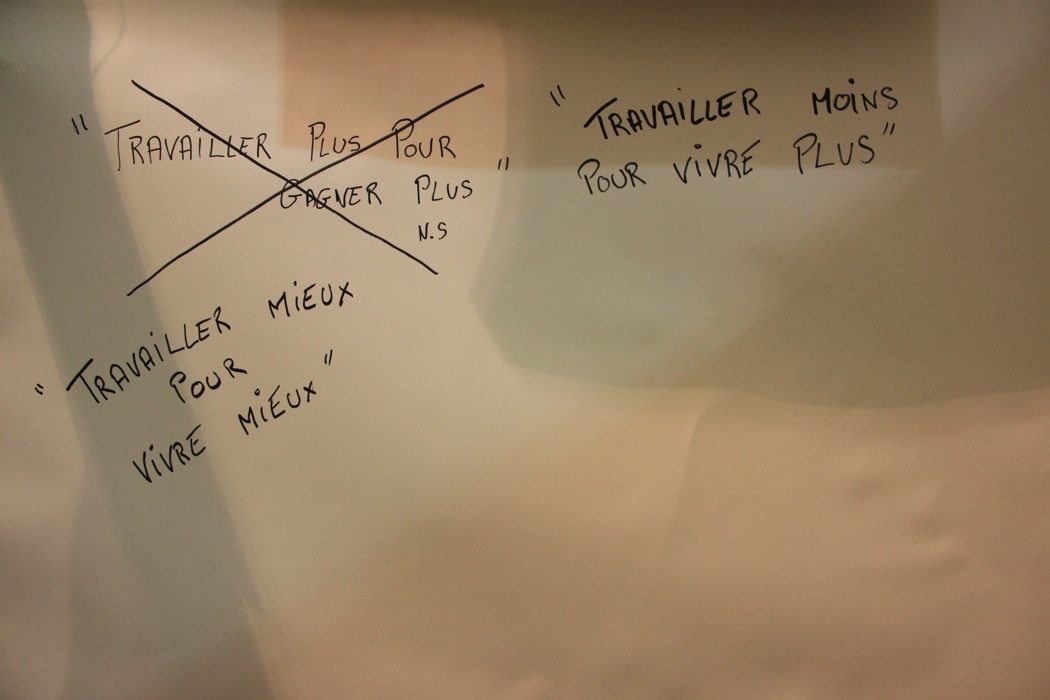 "TRAVAiLLER PLUS POUR
GAGNER PLUS"
N.S
"TRAVAiLLER MOiNS
POUR ViVRE PLUS"
"TRAVAiLLER MiEUX
POUR
ViVRE MiEUX"